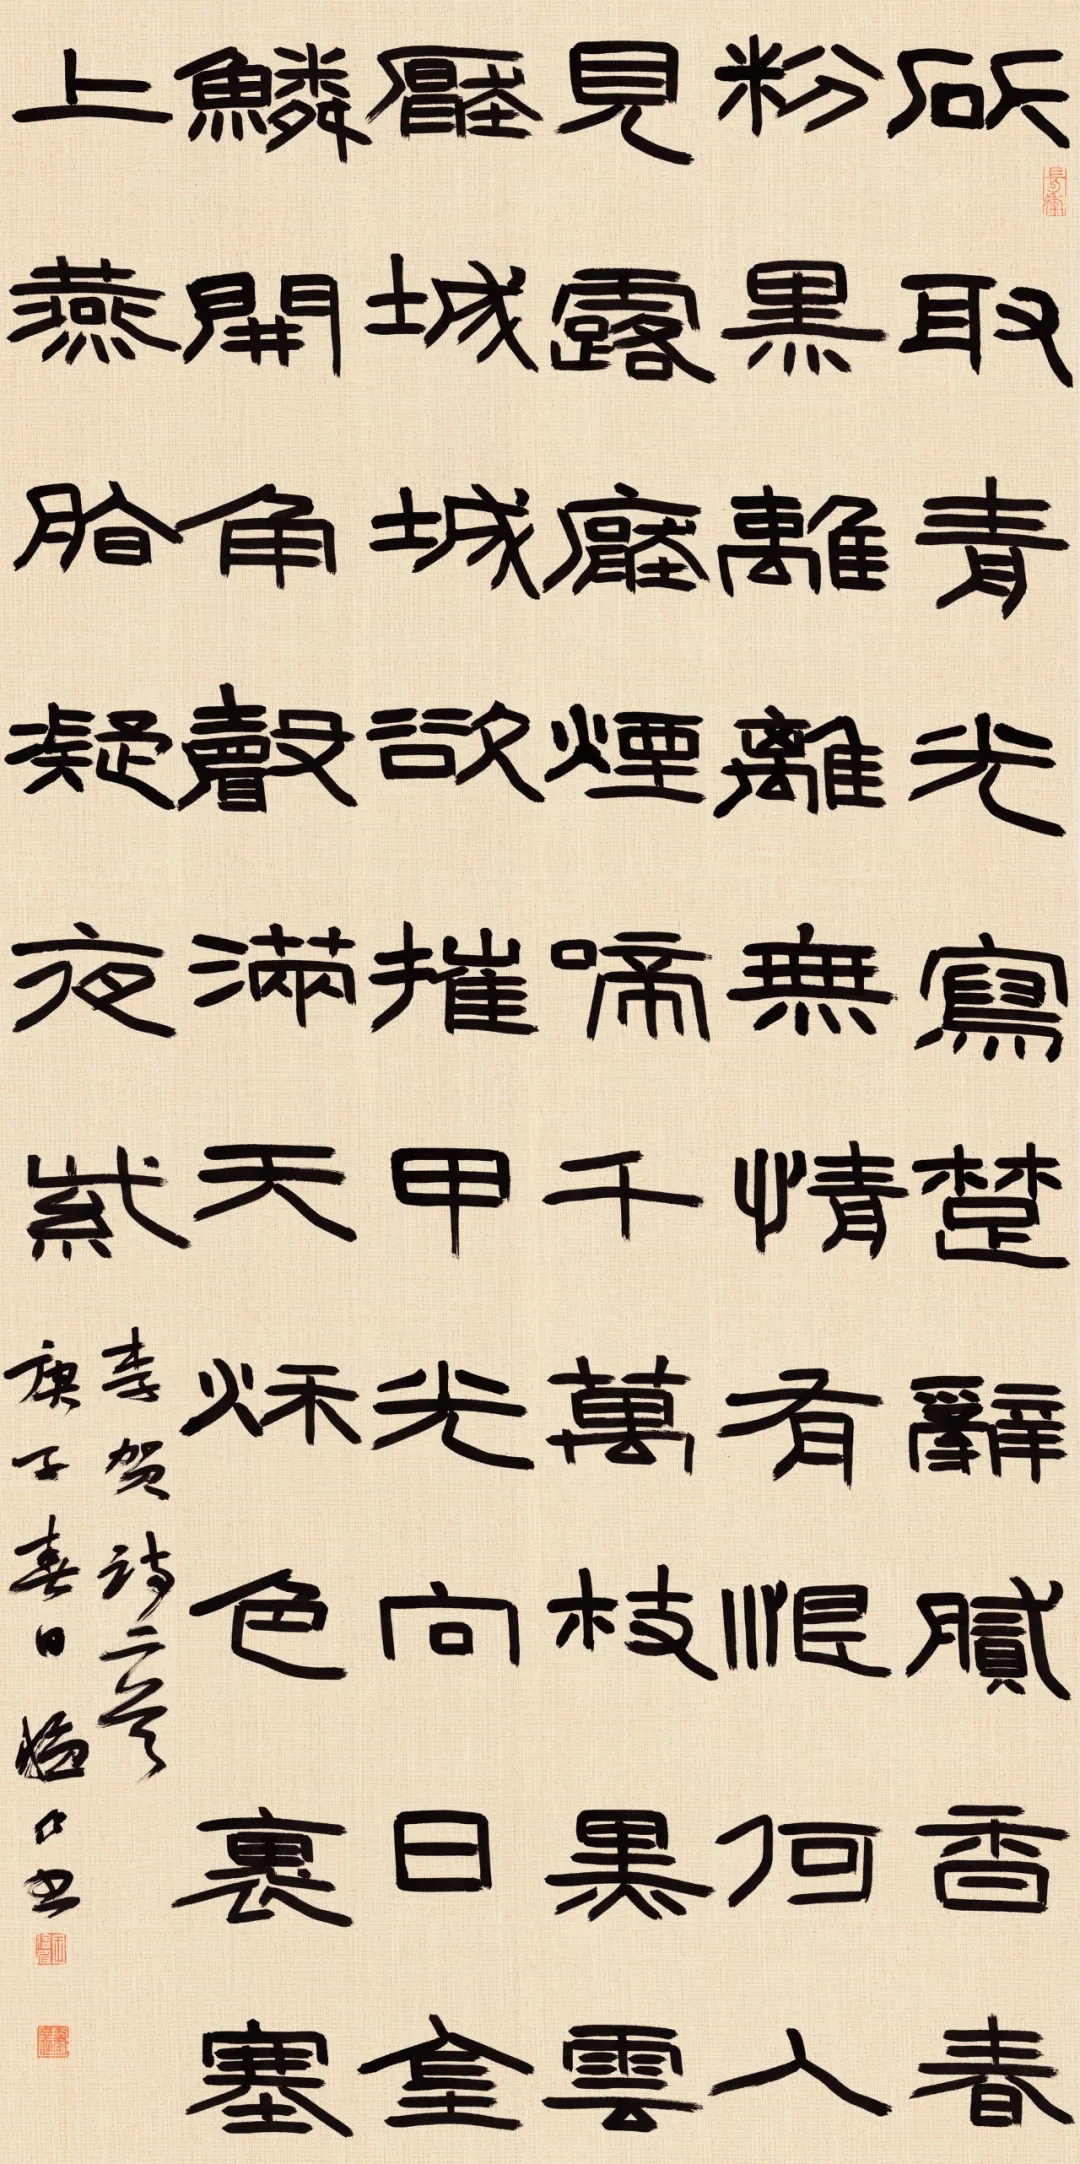 斫取青光寫楚辭膩香春
粉黑離離無情有恨何人
見露壓煙啼千萬枝黑雲
壓城城欲摧甲光向日金
鱗開角聲滿天秋色裏塞
上燕脂凝夜紫
李賀詩二首
庚子春日